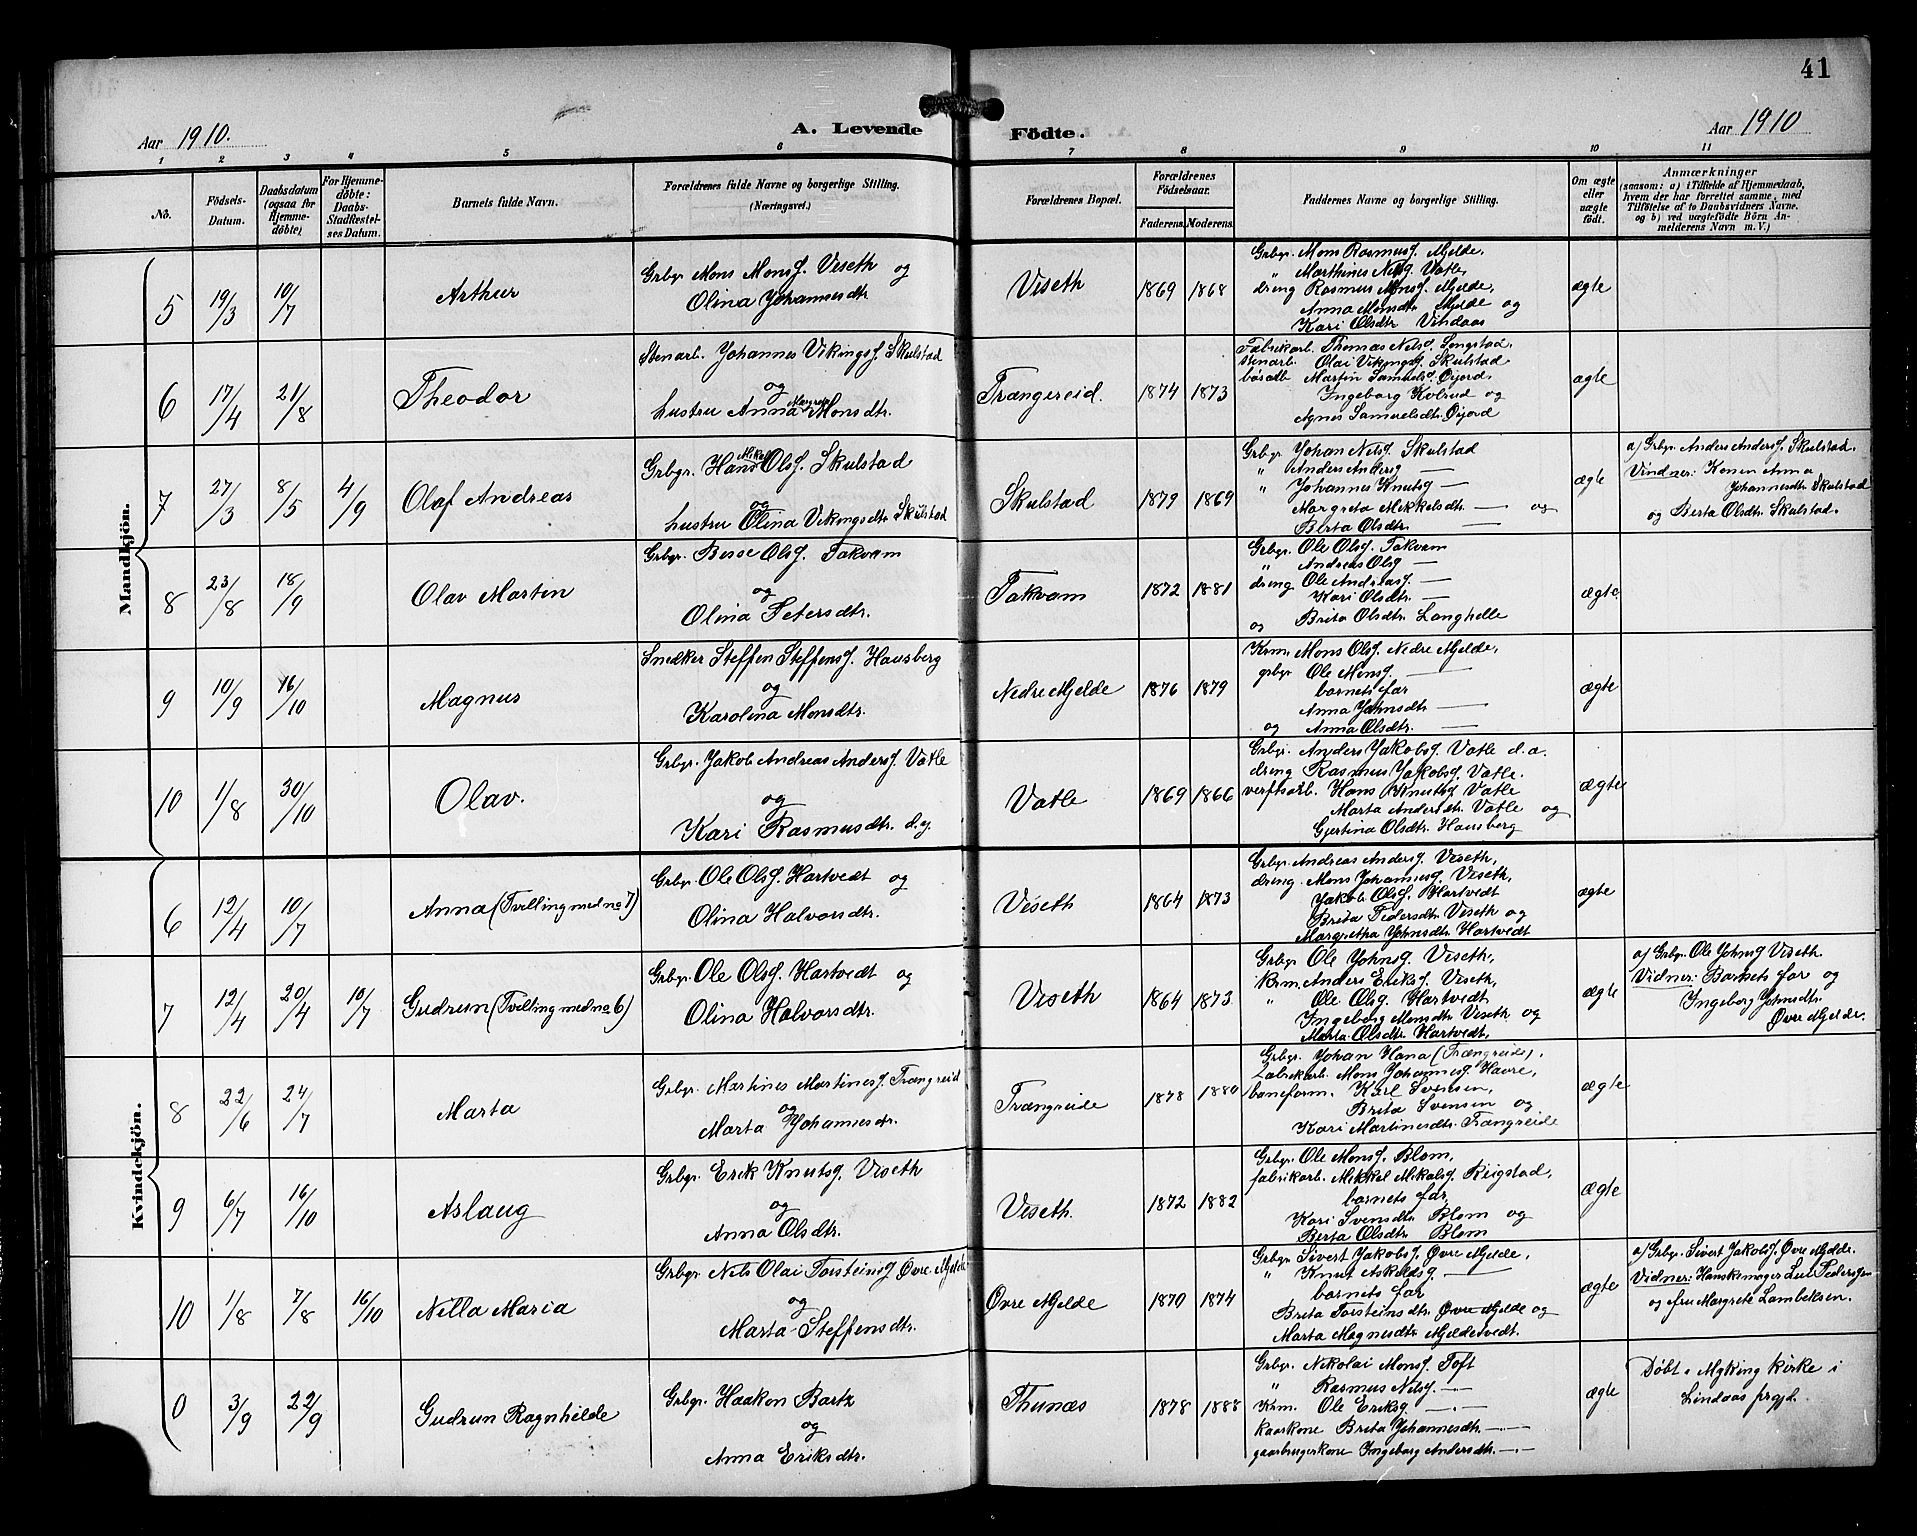 41
Aar 1910.
A. Levende Födte.
Aar 1910
1 2 3 4 5 6 7 8 9 10 11
No.
Födsels-
Datum.
Daabsdatum
(ogsaa for
Hjemme-
döbte).
For Hjemme-
döbte:
Daabs-
Stadfæstel-
ses Datum.
Barnets fulde Navn.
Forældrenes fulde Navne og borgerlige Stilling.
(Næringsvei.)
Forældrenes Bopæl.
Forældrenes
Födselsaar.
Faderens. Moderens.
Faddernes Navne og borgerlige Stilling.
Om ægte
eller
uægte
födt.
Anmærkninger
(saasom: a) i Tilfælde af Hjemmedaab,
hvem der har forrettet samme, med
Tilföielse af to Daabsvidners Navne.
og b) ved uægtefödte Börn An-
melderens Navn m. V.)
Mandkjön.
5 19/3 10/7 Arthur
Grbgr. Mons Monsf. Viseth og
Olina Johannesdtr
Viseth 1869 1868
Grbgr. Mons Rasmusf. Mjelde,
" Marthines Nilsg. Vatle,
dreng Rasmus Monsf. Mjelde,
Anna Monsdtr Mjelde og
Kari Olsdtr Vindaas
ægte
6 17/4 21/8 Theodor
Stenarb. Johannes Vikingsf. Skulstad
og
hustru Anna Margrete Monsdtr.
Trængereid. 1874 1873
Fabrikarb. Thomas Nilsf. Songstad,
stenarb. Olai Vikingsf. Skulstad
Martin Samuelsf. Öijord,
Ingeborg Kolrud og
Agnes Samuelsdtr. Öijord
ægte
7 27/3 8/5 4/9 Olaf Andreas
Grbgr. Hans Mikal Olsf. Skulstad
og
hustru Olina Vikingsdtr Skulstad
Skulstad 1879 1869
Grbgr. Johan Nilsf. Skulstad
" Anders Andersg —
" Johannes Knutsg —
Margreta Mikkelsdtr. — og
Berta Olsdtr. —
ægte
a) Grbgr. Anders Andersf. Skulstad.
Vindner: Konen Anna
Johannesdtr Skulstad
og Berta Olsdtr. Skulstad.
8 23/8 18/9 Olav Martin
Grbgr. Besse Olsf. Takvam
og
Olina Petersdtr.
Takvam 1872 1881
Grbgr. Ole Olsf. Takvam
" Andreas Olsg —
dreng Ole Andreasf. —
Kari Olsdtr. —
og Brita Olsdtr. Langhelle
ægte
9 10/9 16/10 Magnus
Snedker Steffen Steffensf. Hausberg
og
Karolina Monsdtr.
Nedre Mjelde 1876 1879
Krm. Mons Olsf. Nedre Mjelde,
grbgr. Ole Monsf. —
barnets far
Anna Johnsdtr —
og Anna Olsdtr. —
ægte
10 1/8 30/10 Olav.
Grbgr. Jakob Andreas Andersf. Vatle
og
Kari Rasmusdtr. d.y.
Vatle 1869 1866
Grbgr. Anders Jakobsf. Vatle d.a.
dreng Rasmus Jakobsf. Vatle.
verftsarb. Hans Knutsg Vatle
Marta Andersdtr. Vatle og
Gjertina Olsdtr. Hausberg
ægte
Kvindekjön.
6 12/4 10/7 Anna (Tvilling med no 7)
Grbgr. Ole Olsf. Hartvedt og
Olina Halvorsdtr.
Viseth 1864 1873
Grbgr. Andreas Andersf. Viseth,
dreng. Mons Johannesf. Viseth,
Jakob Olsf. Hartvedt
Brita Pedersdtr. Viseth og
Margretha Johnsdtr. Hartvedt
ægte
7 12/4 20/4 10/7 Gudrun (Tvilling med no 6)
Grbgr. Ole Olsf. Hartvedt og
Olina Halvorsdtr.
Viseth 1864 1873.
Grbgr. Ole Johnsf. Viseth,
Krm. Anders Eriksf. Viseth,
" Ole Olsg. Hartvedt
Ingeborg Monsdtr. Viseth og
Marta Olsdtr. Hartvedt,
ægte
a) Grbgr. Ole Johnsf Viseth.
Vidner: Barnets far og
Ingeborg Johnsdtr.
Övre Mjelde.
8 22/6 24/7 Marta
Grbgr. Martines Martinesf. Trængreid
og
Marta Johannesdtr.
Trængreide 1878 1880
Grbgr. Johan Hana (Trængreide),
Fabrikarb. Mons Johannesf. Havre,
baneform. Karl Svensen,
Brita Svensen og
Kari Martinesdtr. Trængreide
ægte
9 6/7 16/10 Aslaug
Grbgr. Erik Knutsf. Viseth
og
Anna Olsdtr.
Viseth. 1872 1882
Grbgr. Ole Monsf. Blom,
fabrikarb. Mikkel Mikalsf. Reigstad,
barnets far,
Kari Svensdtr. Blom og
Berta Olsdtr. Blom
ægte
10 1/8 7/8 16/10 Nilla Maria
Grbgr. Nils Olai Torsteinsf Övre Mjelde
og
Marta Steffensdtr.
Övre Mjelde 1870 1874
Grbgr. Sivert Jakobsf. Övre Mjelde,
" Knut Askeldsg —
barnets far
Brita Torsteinsdtr. Övre Mjelde og
Marta Magnesdtr. Mjeldetvedt.
ægte
a) Grbgr. Sivert Jakobsf. Övre Mjelde.
Vidner: Hanskemager Pedersen
og fru Margrete Lambeksen.
0 3/9 22/9 Gudrun Ragnhilde
Grbgr. Haakon Bartz
og
Anna Eriksdtr.
Thunæs 1878 1888
Grbgr. Nikolai Monsf. Toft
" Rasmus Nilsf. —
Krm. Ole Eriksg —
kaarkone Brita Johannesdtr. —
gaarbrugerkone Ingeborg Andersdtr. —
ægte
Döbt i Myking kirke i
Lindaas prgjd.